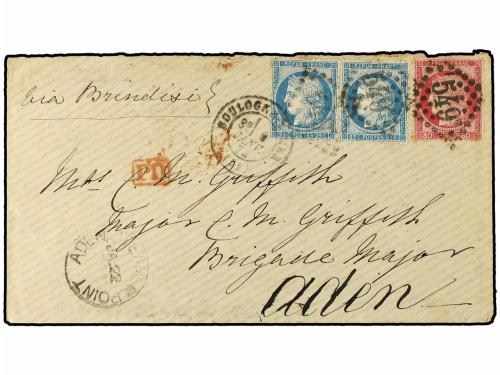 REPUB. FRANC.
REPUB. FRANC.
REPUB. FRANC.
25 C. POSTES 25 C.
80
80
549
via Brindisi
BOULOGNE
PD
Mrs C. M. Griffith
Major C. M. Griffith
Brigade Major
aden
POINT
ADEN
22